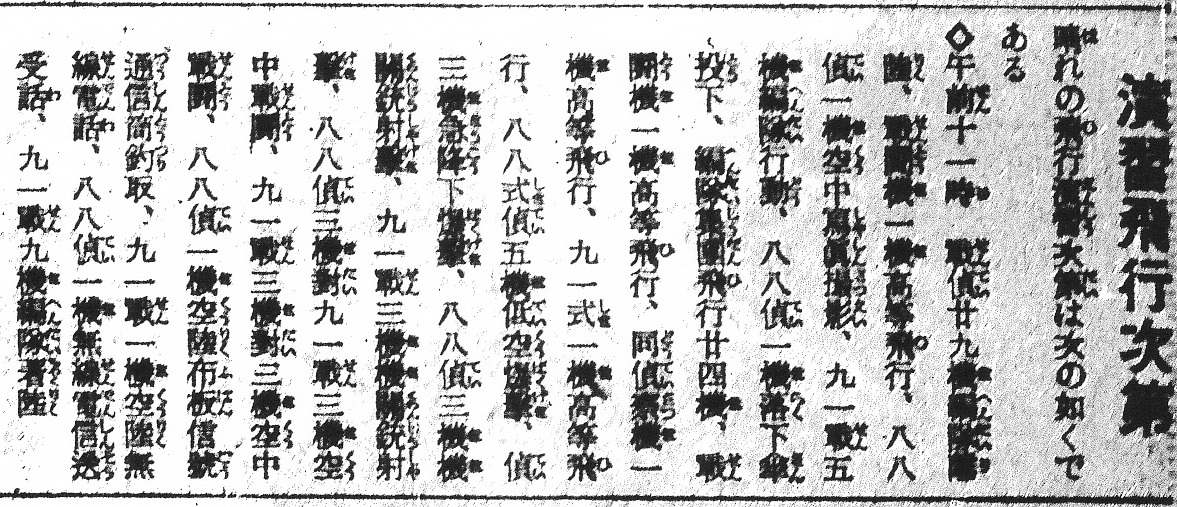 演習飛行次第
晴れの飛行演習次第は次の如くで
ある
◇午前十一時　戰偵廿九機編隊離
陸、戰鬪機一機高等飛行、八八
偵一機空中寫眞撮影、九一戰五
機編隊行動、八八偵一機落下傘
投下、編隊集團飛行廿四機、戰
鬪機一機高等飛行、同偵察機一
機高等飛行、九一式一機高等飛
行、八八式偵五機低空爆擊、偵
三機急降下爆擊、八八偵三機機
關銃射擊、九一戰三機機關銃射
擊、八八偵三機對九一戰三機空
中戰鬪、九一戰三機對三機空中
戰鬪、八八偵一機空陸布板信號
通信筒釣取、九一戰一機空陸無
線電話、八八偵一機無線電信送
受話、九一戰九機編隊着陸